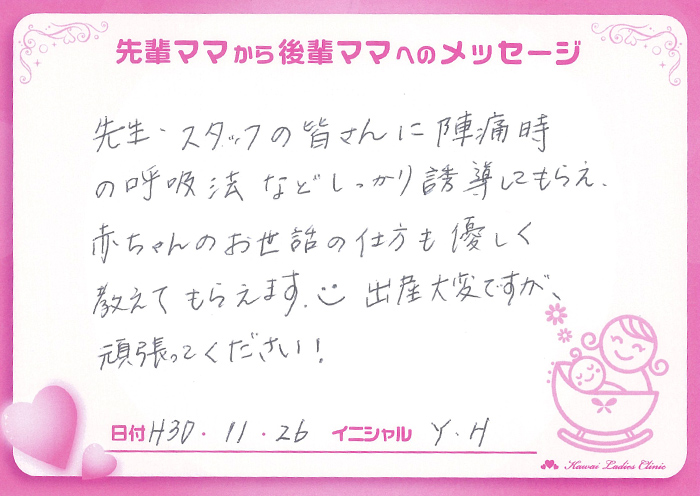 先輩ママから後輩ママへのメッセージ
先生・スタッフの皆さんに陣痛時
の呼吸法などしっかり誘導してもらえ、
赤ちゃんのお世話の仕方も優しく
教えてもらえます。出産大変ですが、
頑張ってください！
日付 H30・11・26 イニシャル Y・H
Kawai Ladies Clinic